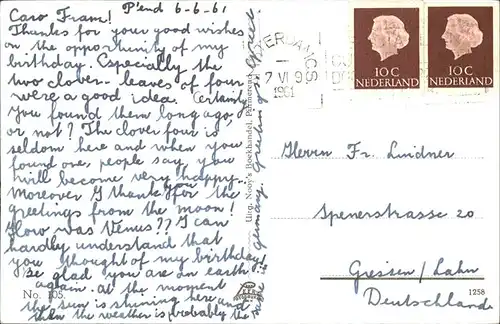 P'end 6-6-61
Caro Franz!
Thanks for your good wishes
on the opportunity of my
birthday. Especially the
two clover-leaves of four
were a good idea. Certainly
you found them long ago,
or not? The clover four is
seldom here and when you
found one, people say, you
will become very happy.
Moreover I thank you for the
greetings from the moon!
How was Venus?? I can
hardly understand that
you thought of my birthday!
Be glad you are on earth
again. At the moment
the sun is shining here and
then the weather is probably the
same in Germany. Greetings
No. 105.
Uitg. Nooy's Boekhandel, Purmerend
AMSTERDAM CS
7 VI 9
1961
10 C
NEDERLAND
10 C
NEDERLAND
Herrn Fr. Lindner
Spenerstrasse 20
Giessen/Lahn
Deutschland
1258